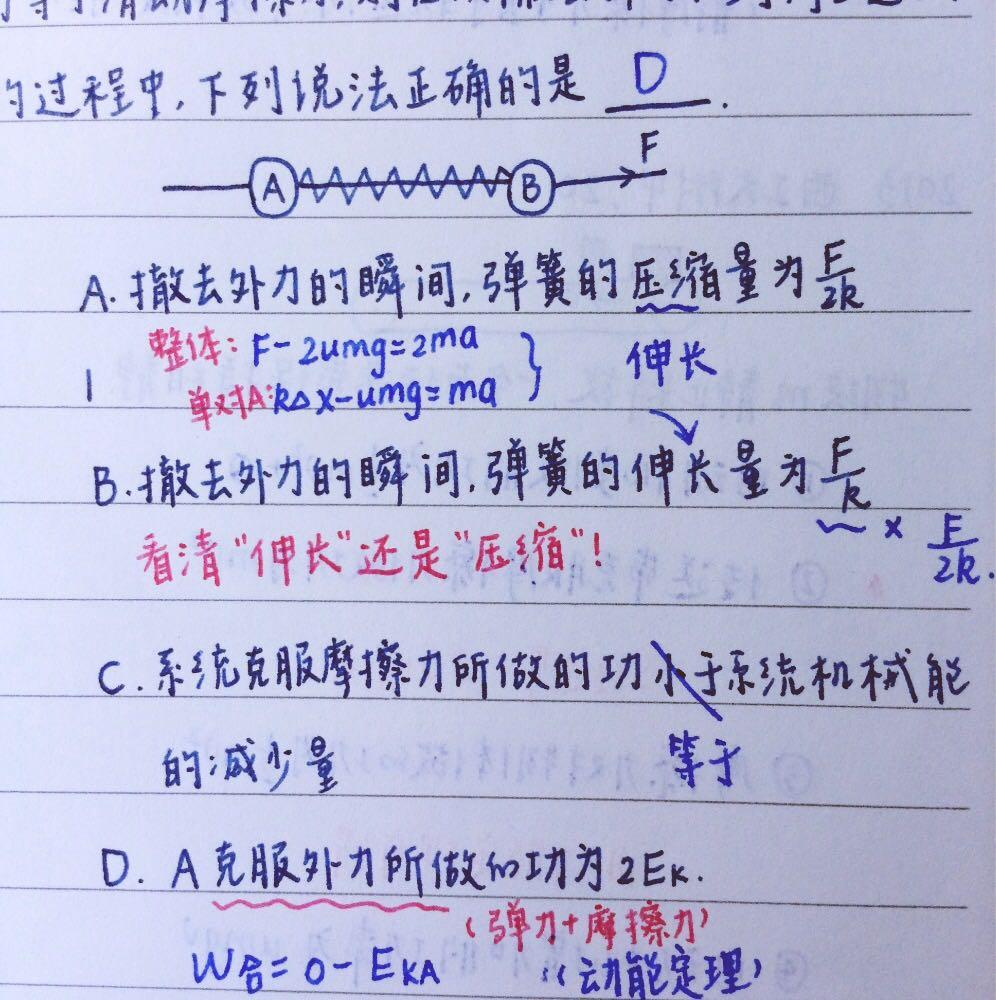 的过程中,下列说法正确的是 D .
A B F
A. 撤去外力的瞬间,弹簧的压缩量为F/2k
整体: F-2umg=2ma
伸长
单对A: kΔx-umg=ma
B. 撤去外力的瞬间,弹簧的伸长量为F/k × F/2k.
看清“伸长”还是“压缩”!
C. 系统克服摩擦力所做的功小于系统机械能
的减少量 等于
D. A克服外力所做的功为2Ek.
(弹力+摩擦力)
W合=0-EKA (动能定理)